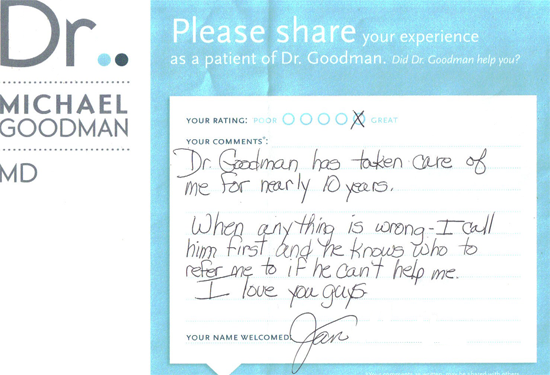 Dr..
MICHAEL
GOODMAN
MD
Please share your experience
as a patient of Dr. Goodman. Did Dr. Goodman help you?
YOUR RATING: POOR GREAT
YOUR COMMENTS*:
Dr. Goodman has taken care of
me for nearly 10 years.
When anything is wrong - I call
him first and he knows who to
refer me to if he can't help me.
I love you guys.
YOUR NAME WELCOMED: Jan